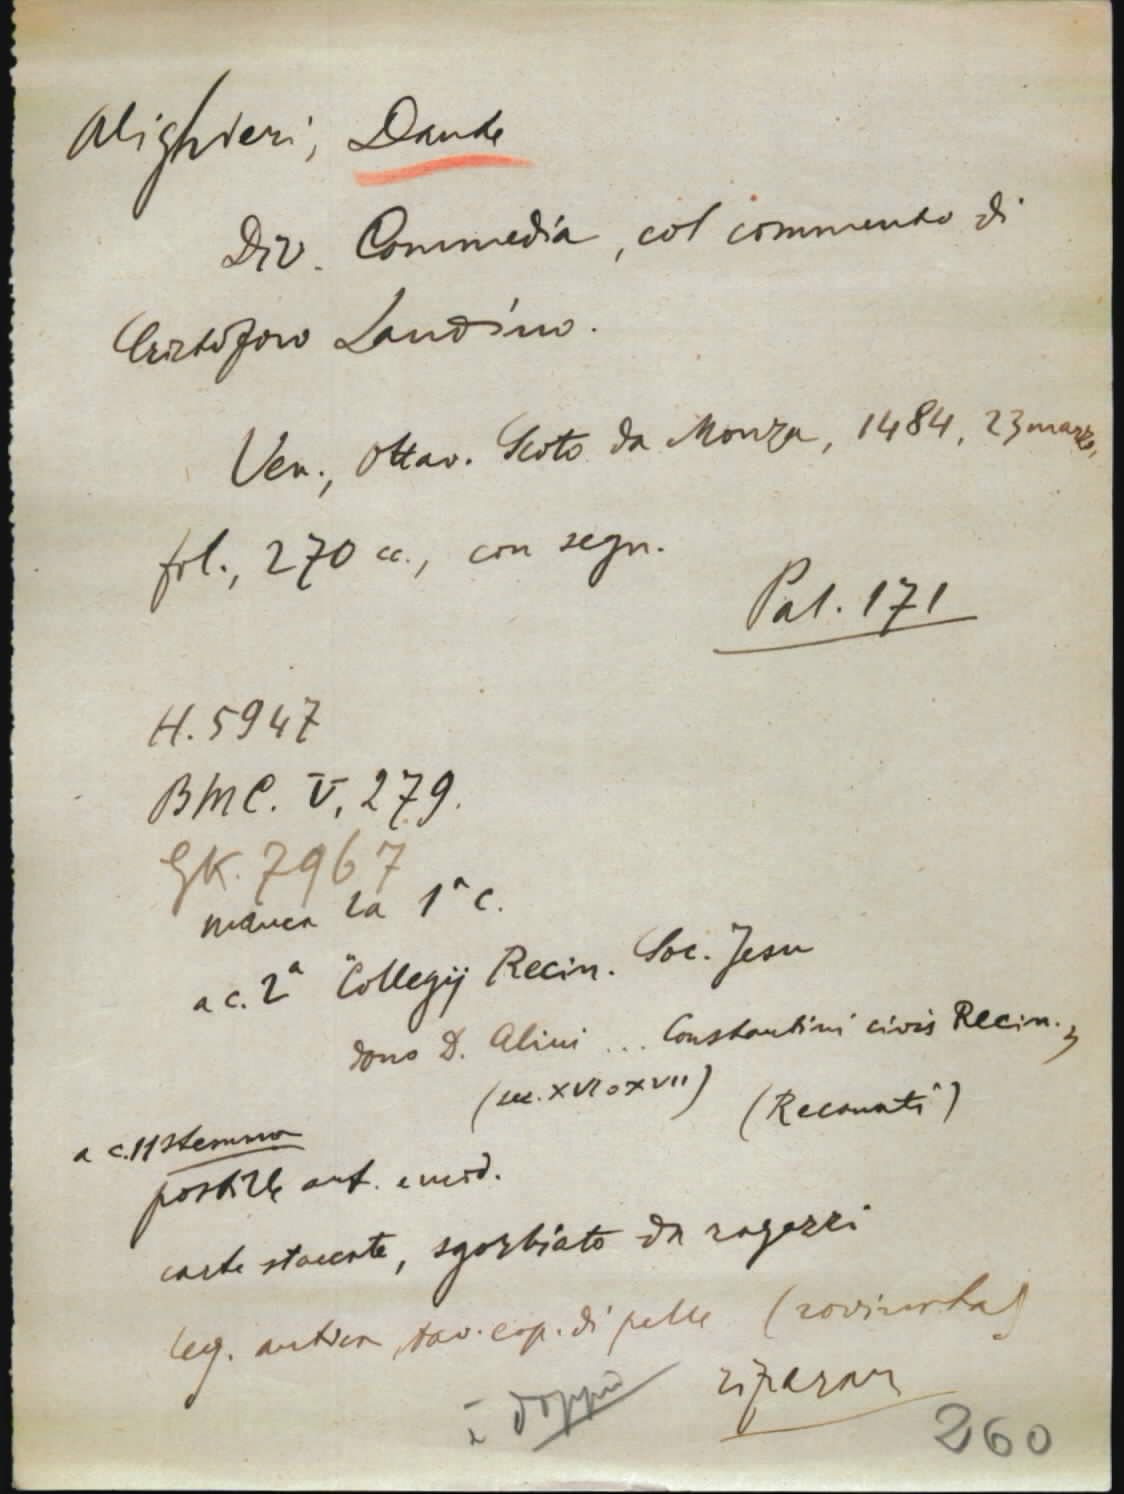 Alighieri, Dante
Div. Commedia, col commento di
Cristoforo Landino.
Ven., Ottav. Scoto da Monza, 1484, 23 marzo,
fol., 270 cc., con segn.
Pal. 171
H. 5947
BMC. V, 279.
GK. 7967
manca la 1ª c.
a c. 2ª "Collegij Recin. Soc. Jesu
dono D. Alini ... Constantini civis Recin.,
(sec. XVI o XVII) (Recanati)
a c. 11 stemma
postille ant. e mod.
carte staccate, sgorbiato da ragazzi
leg. antica, tav. cop. di pelle (rovinata)
riparar
è doppio
260